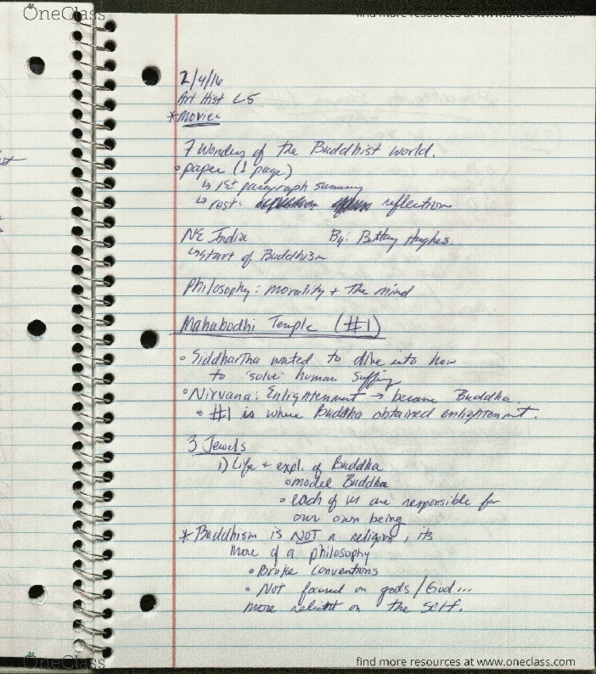 OneClass
find more resources at www.oneclass.com
2/4/16
Art Hist L5
*Movie:
7 Wonders of the Buddhist World.
• paper (1 page)
↳ 1st paragraph summary
↳ rest: reflection
NE India By: Bettany Hughes.
↳ start of Buddhism
Philosophy: Morality + The mind
Mahabodhi Temple (#1)
• Siddhartha wanted to dive into how
to "solve" human suffing
• Nirvana: Enlightenment → became Buddha.
• #1 is where Buddha obtained enlightenment.
3 Jewels
1) Life + expl. of Buddha
• model Buddha
• each of us are responsible for
our own being
* Buddhism is NOT a religion, its
more of a philosophy
• Broke conventions
• Not focused on gods/God...
more reliant on the self.
OneClass
find more resources at www.oneclass.com